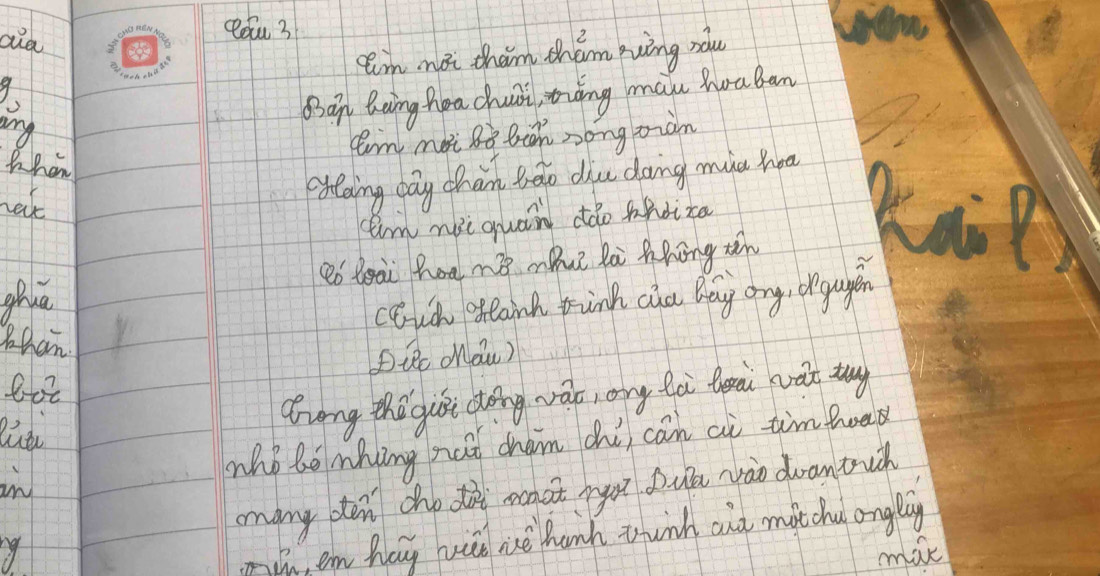 Câu 3
Tìm nơi thăm thẳm rừng sâu
Bập bùng hoa chuối, trắng màu hoa ban
Tìm nơi bờ biển sóng tràn
Hàng cây chắn bão dịu dàng mùa hoa
Tìm nơi quần đảo khơi xa
Có loài hoa nở như là không tên
(Trích Hành trình của bầy ong, Nguyễn
Đức Mậu)
Trong thế giới động vật, ong là loài vật tuy
nhỏ bé nhưng rất chăm chỉ, cần cù tìm hoa
mang đến cho đời mật ngọt. Dựa vào đoạn trích
trên, em hãy viết về hành trình của một chú ong lấy
mật
của
g
ảng
khăn
nát
ghĩa
khăn.
bớt
an
ng